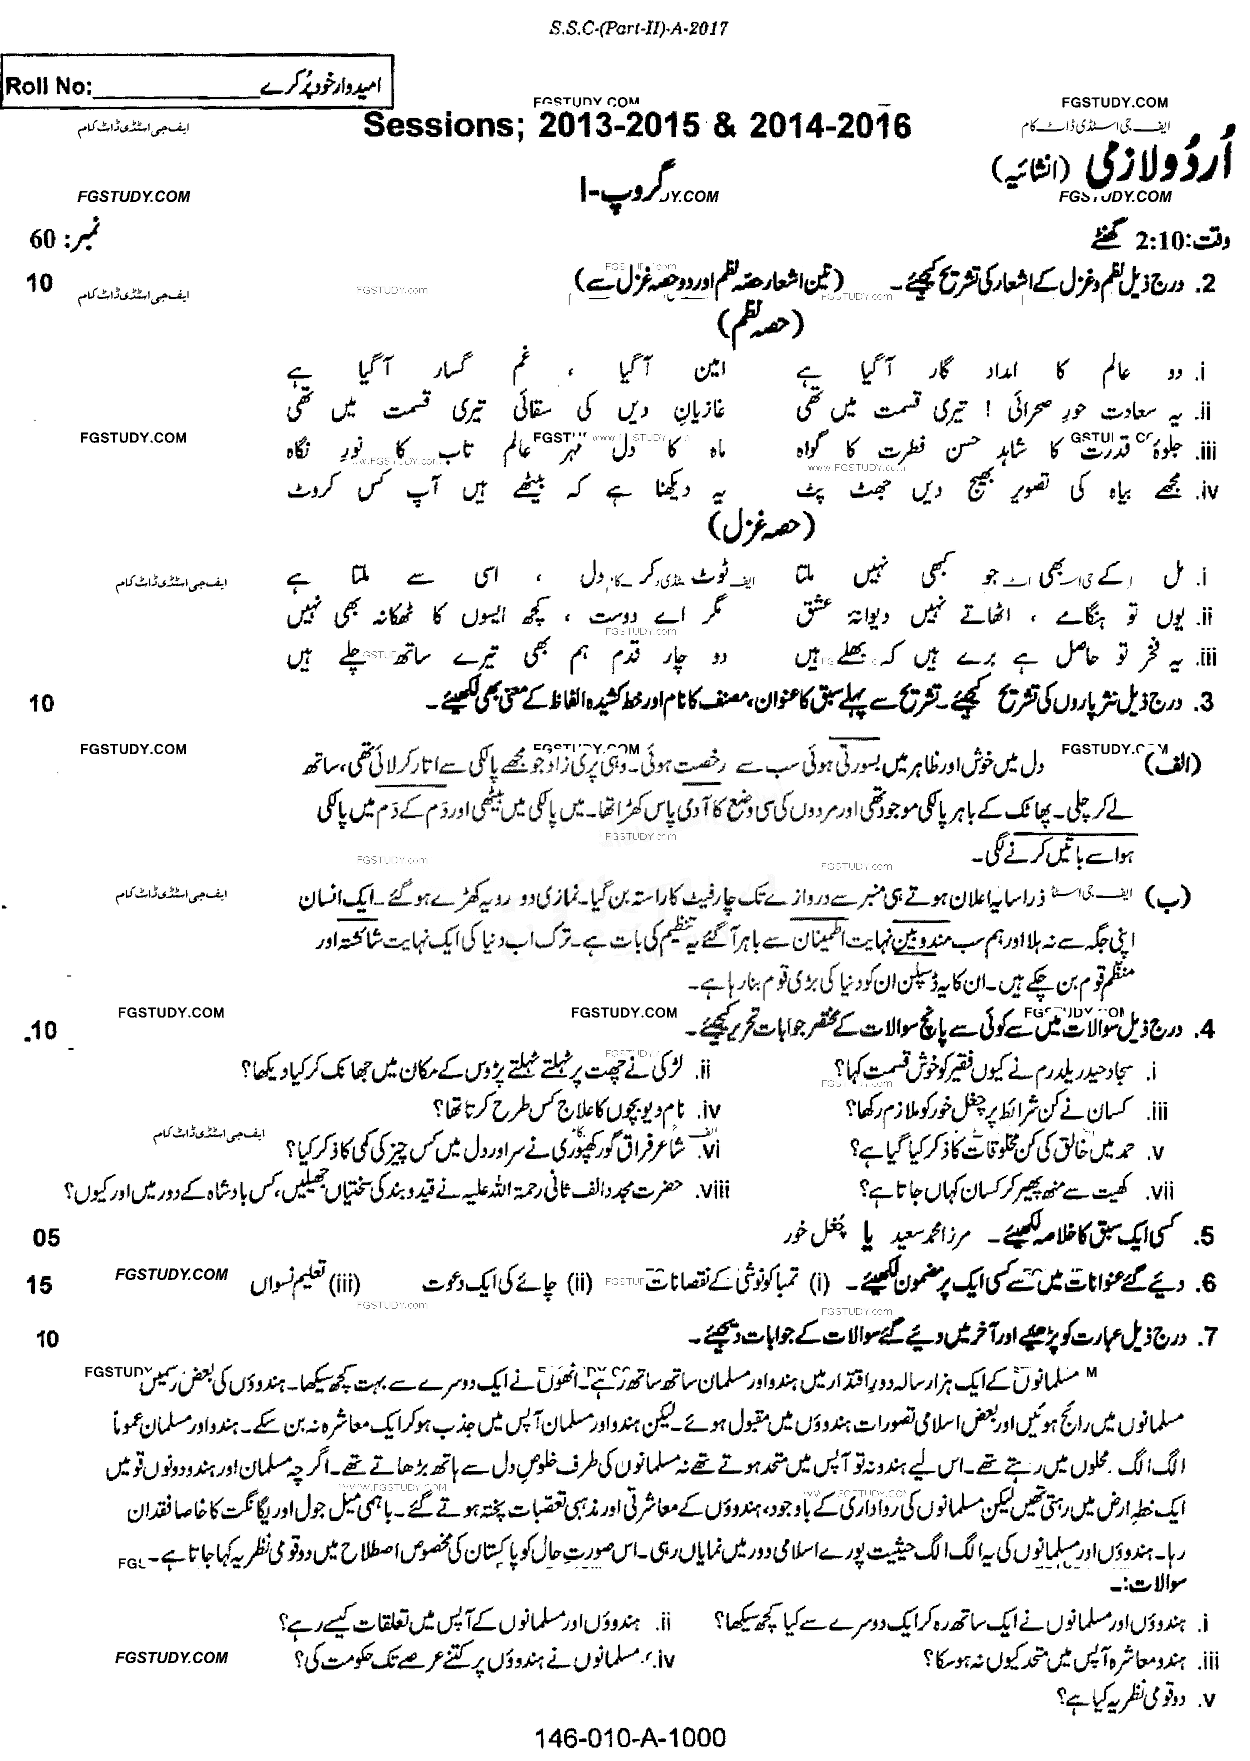 S.S.C-(Part-II)-A-2017
Roll No:____________ امیدوار خود پُر کرے
FGSTUDY.COM FGSTUDY.COM
Sessions; 2013-2015 & 2014-2016
ایف جی اسٹڈی ڈاٹ کام ایف جی اسٹڈی ڈاٹ کام
اُردُو لازمی (انشائیہ)
گروپ-I
FGSTUDY.COM FGSTUDY.COM
وقت: 2:10 گھنٹے نمبر: 60
2. درج ذیل نظم و غزل کے اشعار کی تشریح کیجئے۔ (تین اشعار حصہ نظم اور دو حصہ غزل سے) 10
(حصہ نظم)
i. دو عالم کا امداد گار آ گیا ہے امین آ گیا ، غم گسار آ گیا ہے
ii. یہ سعادت حورِ صحرائی ! تیری قسمت میں تھی غازیانِ دیں کی سقائی تیری قسمت میں تھی
iii. جلوۂ قدرت کا شاہد حسنِ فطرت کا گواہ ماہ کا دل مہرِ عالم تاب کا نورِ نگاہ
iv. مجھے بیاہ کی تصویر بھیج دیں جھٹ پٹ یہ دیکھنا ہے کہ بیٹھے ہیں آپ کس کروٹ
(حصہ غزل)
i. مل کے بھی جو کبھی نہیں ملتا ٹوٹ کر دل ، اسی سے ملتا ہے
ii. یوں تو ہنگامے ، اٹھاتے نہیں دیوانۂ عشق مگر اے دوست ، کچھ ایسوں کا ٹھکانہ بھی نہیں
iii. یہ فخر تو حاصل ہے برے ہیں کہ بھلے ہیں دو چار قدم ہم بھی تیرے ساتھ چلے ہیں
3. درج ذیل نثر پاروں کی تشریح کیجئے۔ تشریح سے پہلے سبق کا عنوان، مصنف کا نام اور خط کشیدہ الفاظ کے معنی بھی لکھیئے۔ 10
(الف) دل میں خوش اور ظاہر میں بسورتی ہوئی سب سے رخصت ہوئی۔ وہی پری زاد جو مجھے پالکی سے اتار کر لائی تھی، ساتھ
لے کر چلی۔ پھاٹک کے باہر پالکی موجود تھی اور مردوں کی سی وضع کا آدمی پاس کھڑا تھا۔ میں پالکی میں بیٹھی اور دَم کے دَم میں پالکی
ہوا سے باتیں کرنے لگی۔
(ب) ذرا سا یہ اعلان ہوتے ہی منبر سے دروازے تک چار فیٹ کا راستہ بن گیا۔ نمازی دو رویہ کھڑے ہو گئے۔ ایک انسان
اپنی جگہ سے نہ ہلا اور ہم سب مندوبین نہایت اطمینان سے باہر آ گئے یہ تنظیم کی بات ہے۔ ترک اب دنیا کی ایک نہایت شائستہ اور
منظم قوم بن چکے ہیں۔ ان کا یہ ڈسپلن ان کو دنیا کی بڑی قوم بنا رہا ہے۔
FGSTUDY.COM FGSTUDY.COM
4. درج ذیل سوالات میں سے کوئی سے پانچ سوالات کے مختصر جوابات تحریر کیجئے۔ 10.
i. سجاد حیدر یلدرم نے کیوں فقیر کو خوش قسمت کہا؟ ii. لڑکی نے چھت پر ٹہلتے ٹہلتے پڑوس کے مکان میں جھانک کر کیا دیکھا؟
iii. کسان نے کن شرائط پر چغل خور کو ملازم رکھا؟ iv. نام دیو بچوں کا علاج کس طرح کرتا تھا؟
v. حمد میں خالق کی کن مخلوقات کا ذکر کیا گیا ہے؟ vi. شاعر فراق گورکھپوری نے سر اور دل میں کس چیز کی کمی کا ذکر کیا؟
vii. کھیت سے منھ پھیر کر کسان کہاں جاتا ہے؟ viii. حضرت مجدد الف ثانی رحمۃ اللہ علیہ نے قید و بند کی سختیاں جھیلیں، کس بادشاہ کے دور میں اور کیوں؟
5. کسی ایک سبق کا خلاصہ لکھیئے۔ مرزا محمد سعید یا چغل خور 05
6. دیے گئے عنوانات میں سے کسی ایک پر مضمون لکھیئے۔ (i) تمباکو نوشی کے نقصانات (ii) چائے کی ایک دعوت (iii) تعلیم نسواں 15
7. درج ذیل عبارت کو پڑھیے اور آخر میں دیے گئے سوالات کے جوابات دیجئے۔ 10
مسلمانوں کے ایک ہزار سالہ دورِ اقتدار میں ہندو اور مسلمان ساتھ ساتھ رہے۔ انھوں نے ایک دوسرے سے بہت کچھ سیکھا۔ ہندوؤں کی بعض رسمیں
مسلمانوں میں رائج ہوئیں اور بعض اسلامی تصورات ہندوؤں میں مقبول ہوئے۔ لیکن ہندو اور مسلمان آپس میں جذب ہو کر ایک معاشرہ نہ بن سکے۔ ہندو اور مسلمان عموماً
الگ الگ محلوں میں رہتے تھے۔ اس لیے ہندو نہ تو آپس میں متحد ہوتے تھے نہ مسلمانوں کی طرف خلوصِ دل سے ہاتھ بڑھاتے تھے۔ اگرچہ مسلمان اور ہندو دونوں قومیں
ایک خطہ ارض میں رہتی تھیں لیکن مسلمانوں کی رواداری کے باوجود، ہندوؤں کے معاشرتی اور مذہبی تعصبات پختہ ہوتے گئے۔ باہمی میل جول اور یگانگت کا خاصا فقدان
رہا۔ ہندوؤں اور مسلمانوں کی یہ الگ الگ حیثیت پورے اسلامی دور میں نمایاں رہی۔ اس صورتِ حال کو پاکستان کی مخصوص اصطلاح میں دو قومی نظریہ کہا جاتا ہے۔
سوالات:۔
i. ہندوؤں اور مسلمانوں نے ایک ساتھ رہ کر ایک دوسرے سے کیا کچھ سیکھا؟ ii. ہندوؤں اور مسلمانوں کے آپس میں تعلقات کیسے رہے؟
iii. ہندو معاشرہ آپس میں متحد کیوں نہ ہو سکا؟ iv. مسلمانوں نے ہندوؤں پر کتنے عرصے تک حکومت کی؟
v. دو قومی نظریہ کیا ہے؟
146-010-A-1000